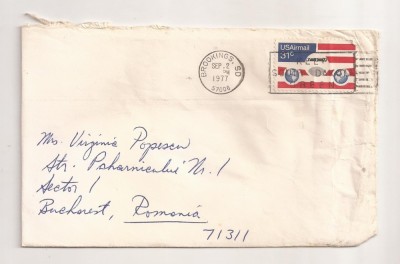 BROOKINGS, SD
SEP 2
PM
1977
57006
USAirmail
31c
Mrs. Virginia Popescu
Str. Paharnicului Nr. 1
Sector 1
Bucharest, Romania
71311